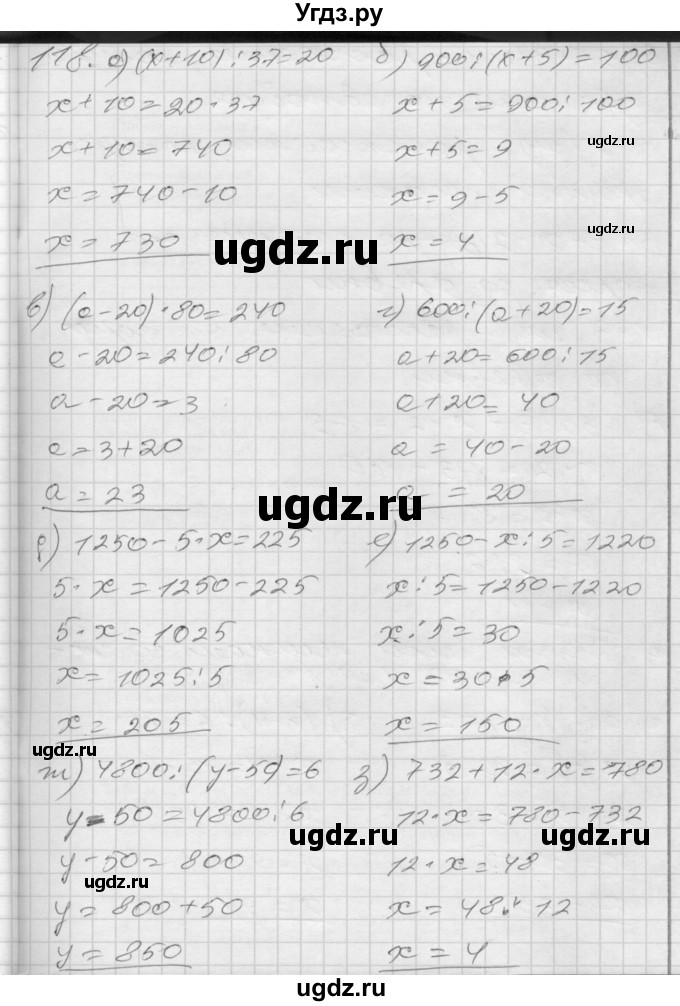 Угдз.ру
118. а) (x+10):37=20
x+10=20·37
x+10=740
x=740-10
x=730
б) 900:(x+5)=100
x+5=900:100
x+5=9
x=9-5
x=4
в) (a-20)·80=240
a-20=240:80
a-20=3
a=3+20
a=23
г) 600:(a+20)=15
a+20=600:15
a+20=40
a=40-20
a=20
д) 1250-5·x=225
5·x=1250-225
5·x=1025
x=1025:5
x=205
е) 1250-x:5=1220
x:5=1250-1220
x:5=30
x=30·5
x=150
ж) 4800:(y-50)=6
y-50=4800:6
y-50=800
y=800+50
y=850
з) 732+12·x=780
12·x=780-732
12·x=48
x=48:12
x=4
ugdz.ru
ugdz.ru
ugdz.ru
ugdz.ru
ugdz.ru
ugdz.ru
ugdz.ru
ugdz.ru
ugdz.ru